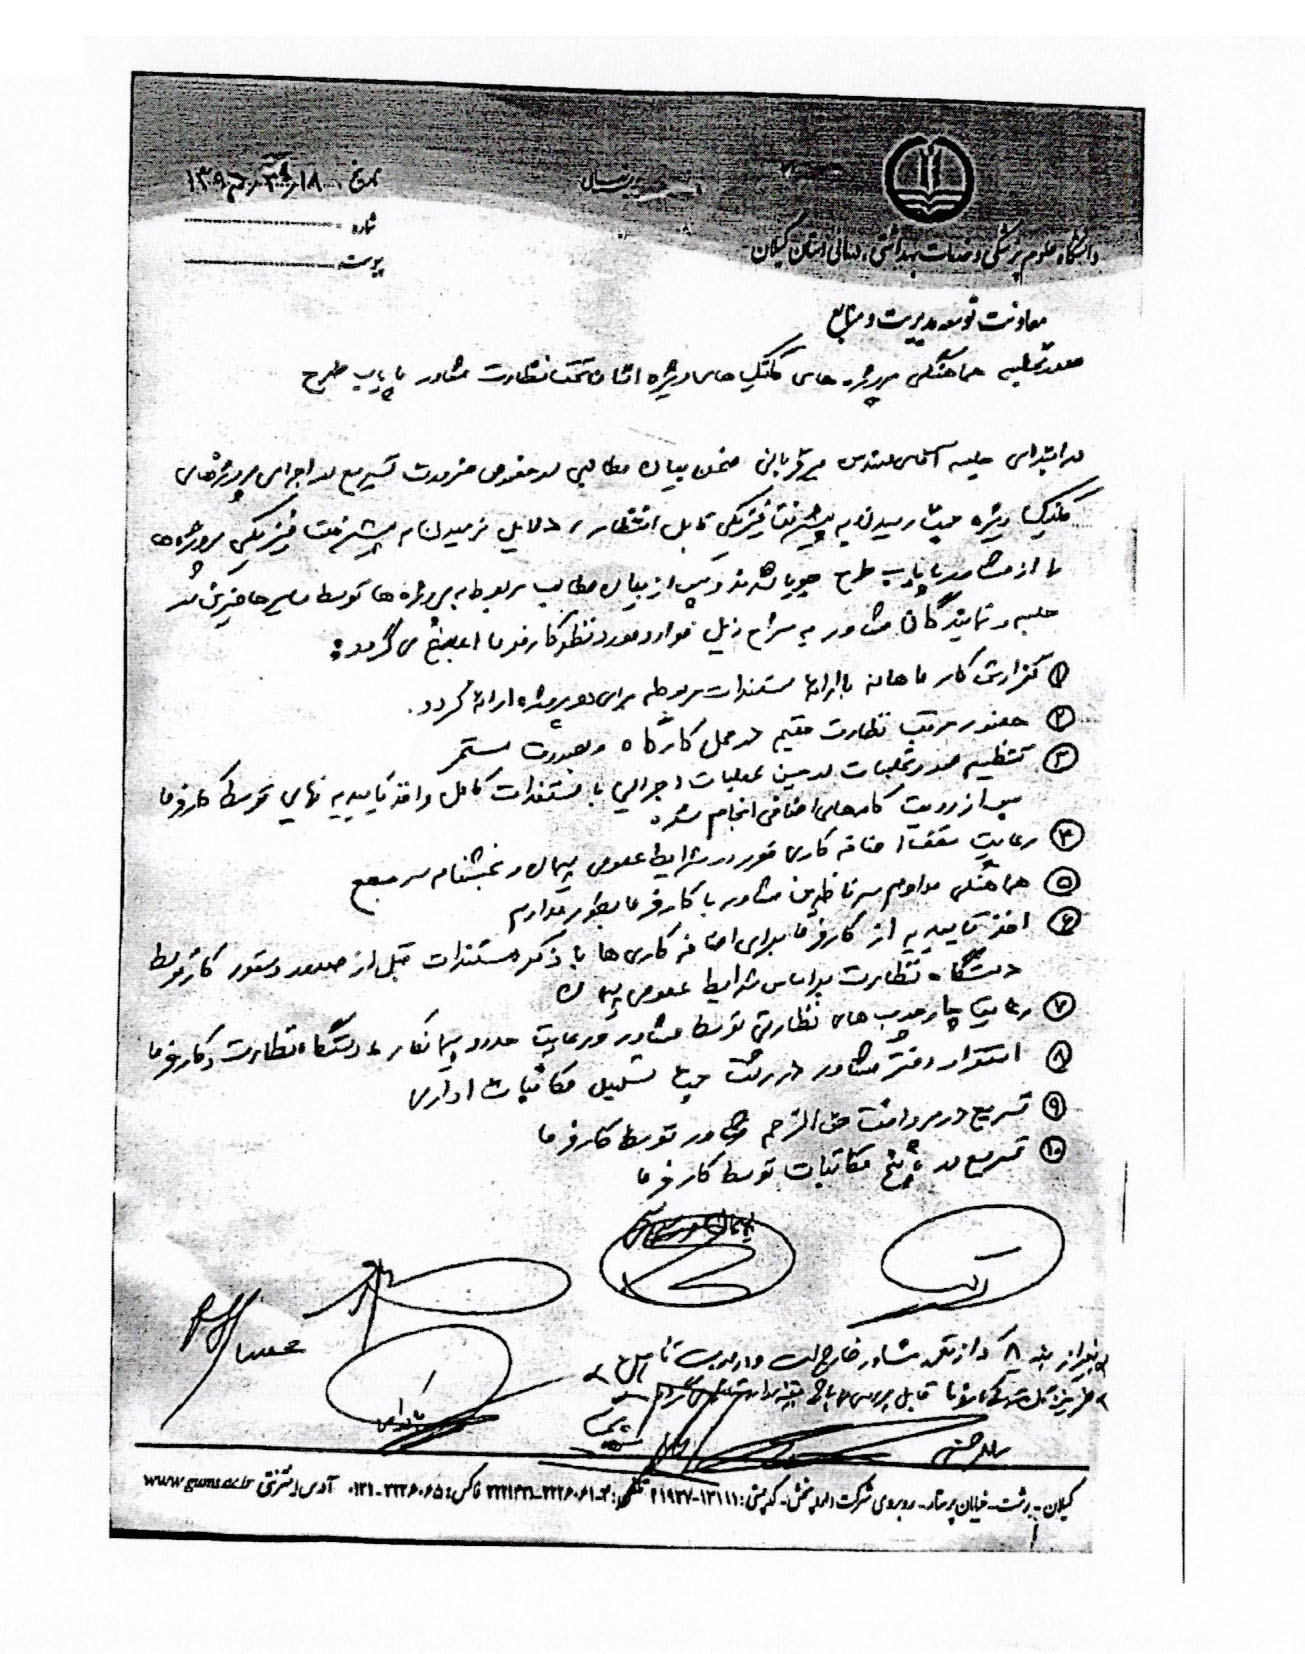 تاریخ
شماره
پیوست
دانشگاه علوم پزشکی و خدمات بهداشتی، درمانی استان گیلان
معاونت توسعه مدیریت و منابع
صورتجلسه هماهنگی پروژه های کلنیک های ویژه استان تحت نظارت مشاور پایاب طرح
در ابتدای جلسه آقای مهندس میرقربانی ضمن بیان مطالبی در خصوص ضرورت تسریع در اجرای پروژه های
کلنیک ویژه جهت رسیدن به پیشرفت فیزیکی قابل انتظار، دلایل نرسیدن به پیشرفت فیزیکی پروژه ها
را از مشاور پایاب طرح جویا شدند و پس از بیان مطالب مربوط به پروژه ها توسط سایر حاضرین در
جلسه و نمایندگان مشاور به شرح ذیل موارد مورد نظر کارفرما ابلاغ می گردد:
۱ گزارش کار ماهانه با ارائه مستندات مربوطه برای دو پروژه ارائه گردد.
۲ حضور مرتب نظارت مقیم در محل کارگاه و بصورت مستمر
۳ تنظیم صورتجلسات در حین عملیات اجرایی با مستندات کامل و اخذ تاییدیه نهایی توسط کارفرما
پس از رویت کارهای اضافی انجام شده
۴ رعایت سقف اضافه کاری مقرر در شرایط عمومی پیمان و بخشنامه سر جمع
۵ هماهنگی مداوم سرناظرین مشاور با کارفرما بطور مداوم
۶ اخذ تاییدیه از کارفرما برای اضافه کاری ها با ذکر مستندات قبل از صدور دستور کار توسط
دستگاه نظارت بر اساس شرایط عمومی پیمان
۷ رعایت چارچوب های نظارتی توسط مشاور و رعایت حدود پیمانکار، دستگاه نظارت و کارفرما
۸ استقرار دفتر مشاور در رشت جهت تسهیل مکاتبات اداری
۹ تسریع در پرداخت حق الزحمه مشاور توسط کارفرما
۱۰ تسریع در پاسخ مکاتبات توسط کارفرما
بغیر از بند ۸ که از تعهد مشاور خارج است و
قابل بررسی
گیلان - رشت - خیابان پرستار - روبروی شرکت دارو پخش - کدپستی: ۱۳۱۱۱-۲۱۹۳۷ تلفن: فاکس: ۳۲۲۶۰۶۵-۰۱۳۱ آدرس اینترنتی www.gums.ac.ir